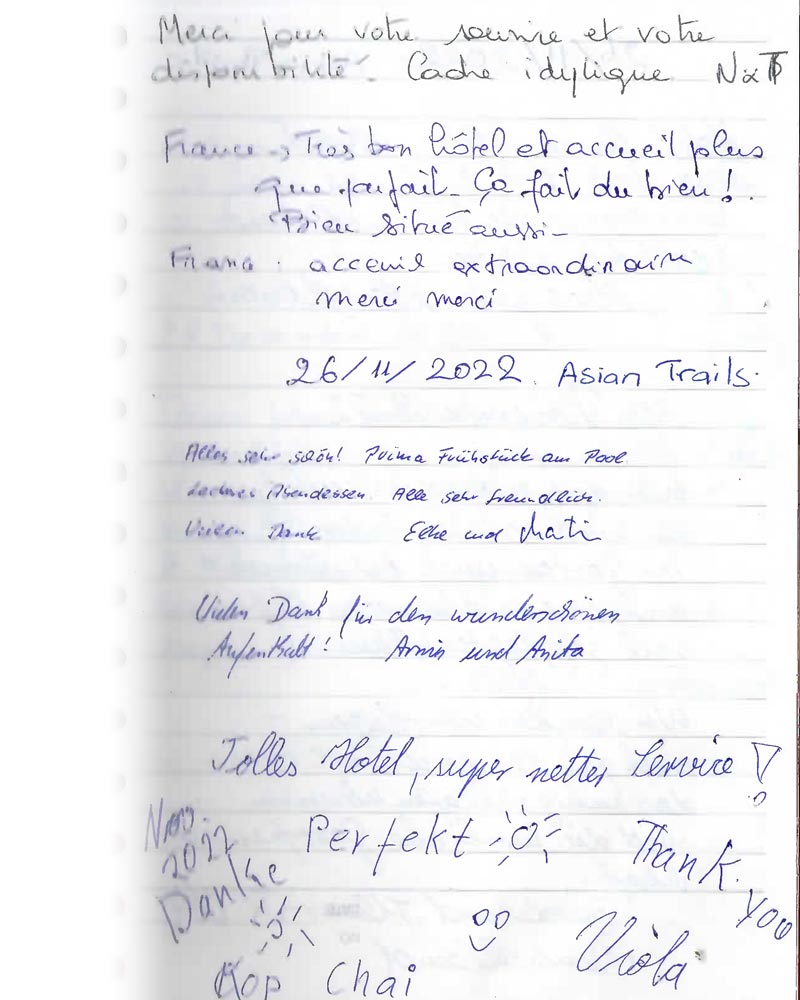 Merci pour votre sourire et votre
disponibilité. Cadre idylique N&T
France → Très bon hôtel et accueil plus
que parfait. Ça fait du bien !
Bien situé aussi -
acceuil extraordinaire
merci merci
26/11/2022. Asian Trails.
Alles sehr schön! Prima Frühstück am Pool
Leckeres Abendessen. Alle sehr freundlich.
Vielen Dank und
Vielen Dank für den wunderschönen
Aufenthalt! Armin und Anita
Tolles Hotel, super netter Service!
Nov. 2022
Perfekt
Thank you
Danke
Kop Chai
Viola